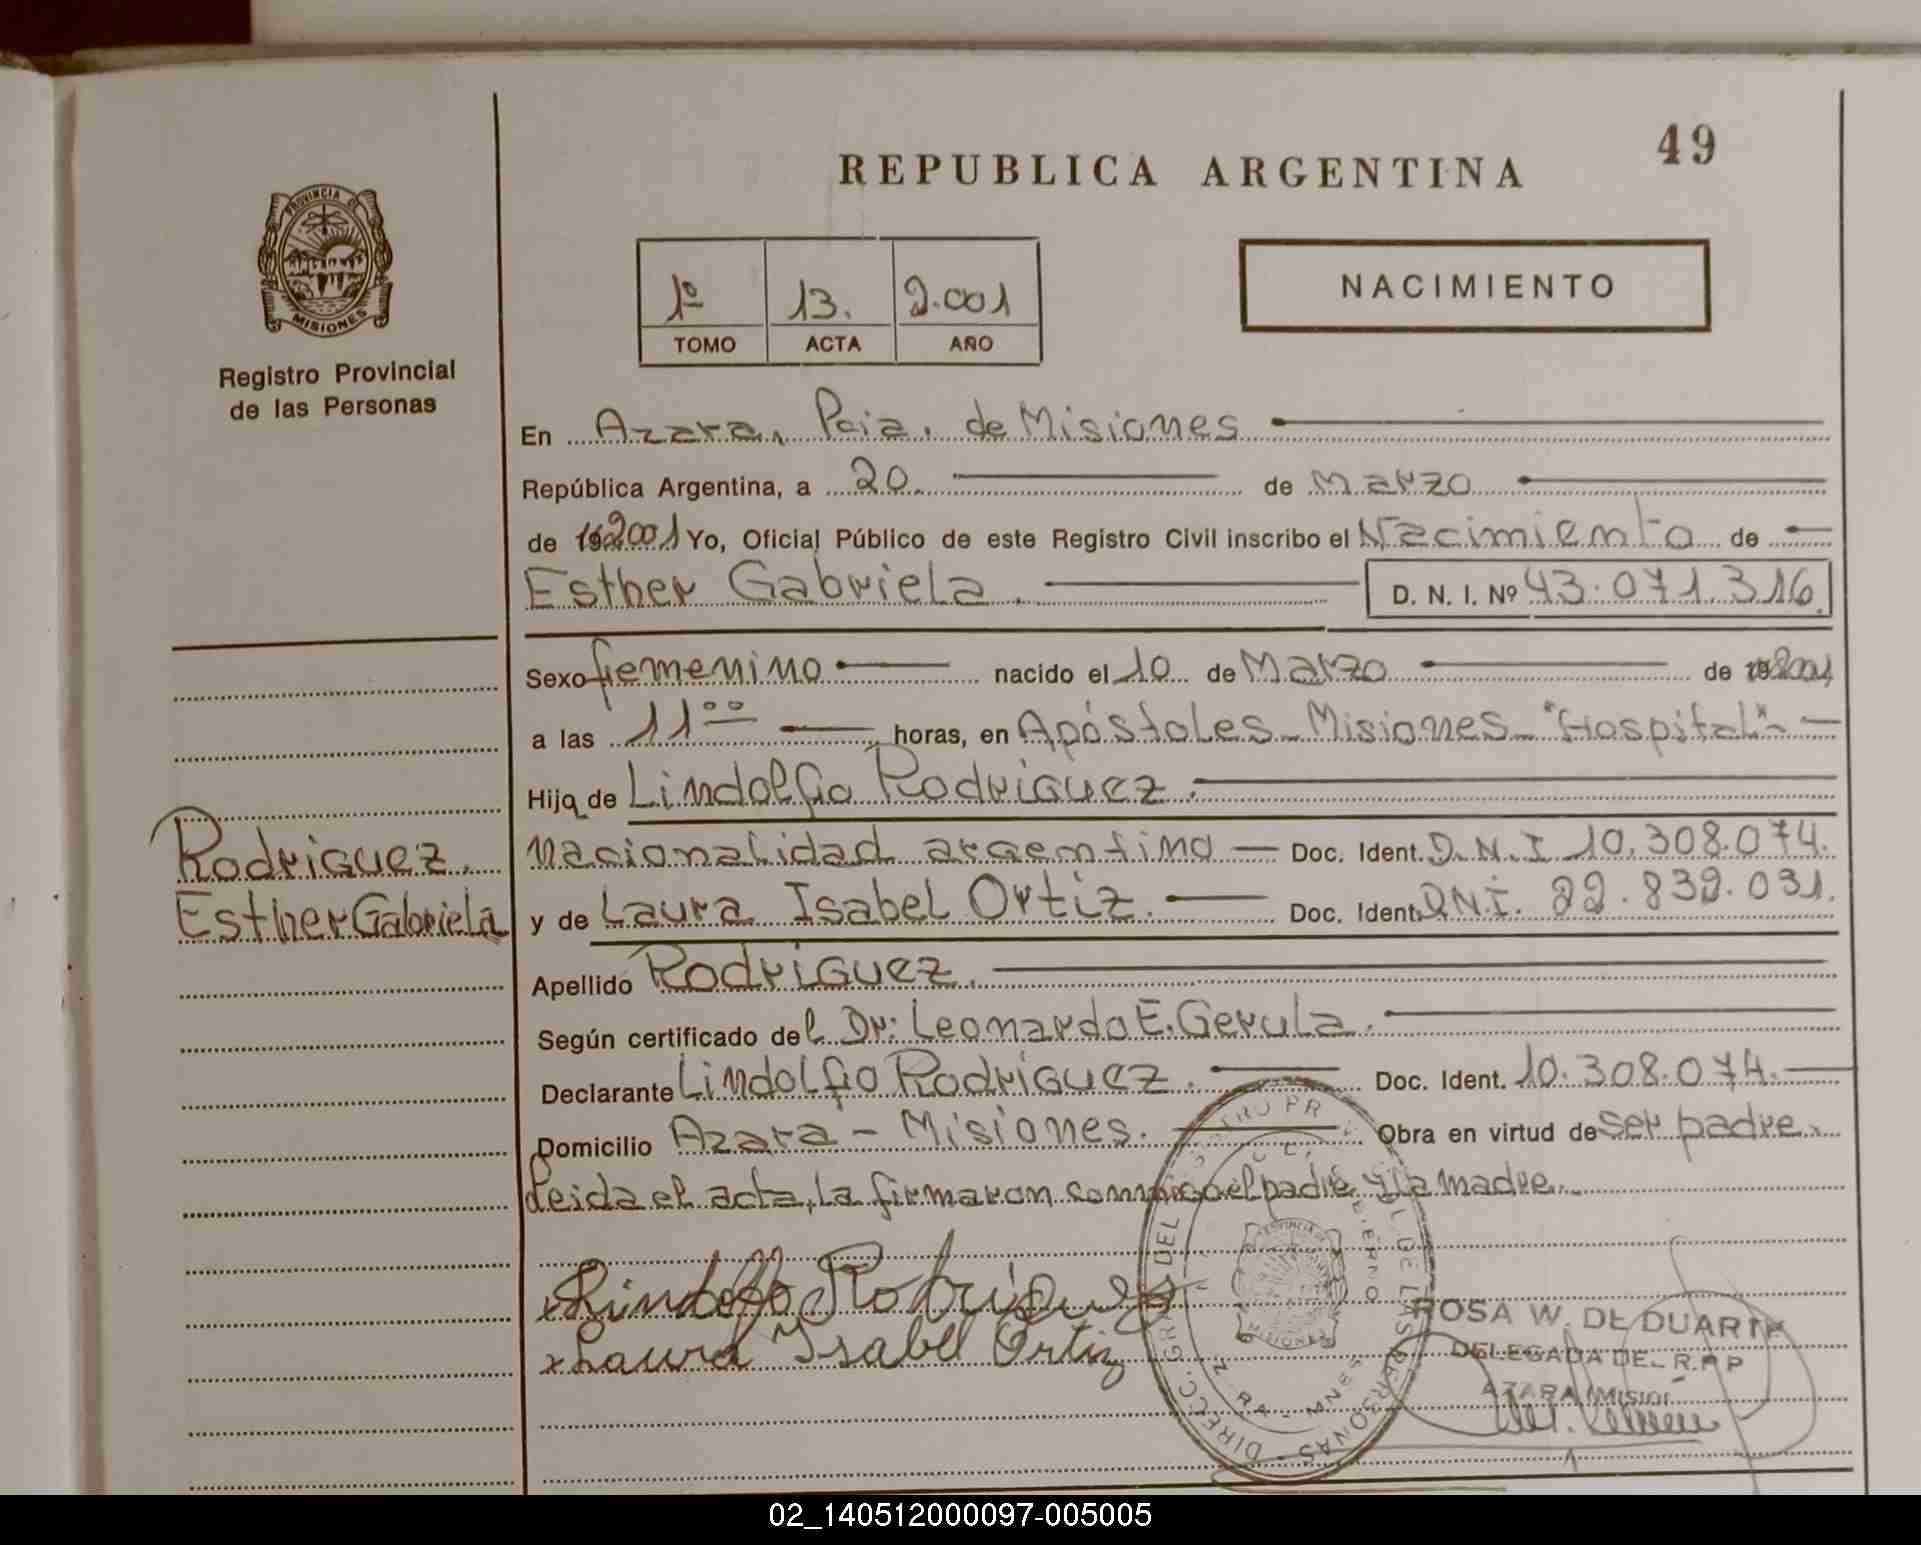 49
REPUBLICA ARGENTINA
PROVINCIA DE
MISIONES
Registro Provincial
de las Personas
1º 13. 2.001
TOMO ACTA AÑO
NACIMIENTO
En Azara, Pcia. de Misiones
República Argentina, a 20 de Marzo
de 2001 Yo, Oficial Público de este Registro Civil inscribo el Nacimiento de
Esther Gabriela. D. N. I. Nº 43.071.316.
Sexo femenino nacido el 10 de Marzo de 2001
a las 11 ºº horas, en Apóstoles - Misiones - "Hospital" -
Hija de Lindolfo Rodriguez.
nacionalidad argentino Doc. Ident. D.N.I 10.308.074.
y de Laura Isabel Ortiz. Doc. Ident. DNI. 22.832.031.
Rodriguez.
Esther Gabriela
Apellido Rodriguez.
Según certificado del Dr: Leonardo E. Gerula.
Declarante Lindolfo Rodriguez. Doc. Ident. 10.308.074.
Domicilio Azara - Misiones. Obra en virtud de ser padre.
Leida el acta, la firmaron conmigo el padre y la madre.
x Lindolfo Rodriguez
x Laura Isabel Ortiz
ROSA W. DE DUARTE
DELEGADA DEL R.P.P
AZARA (MISIO
02_140512000097-005005